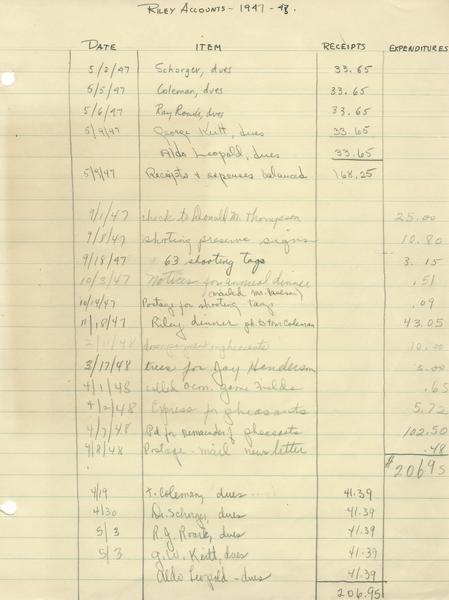 RILEY ACCOUNTS - 1947 - 48.
DATE ITEM RECEIPTS EXPENDITURES
5/2/47 Schorger, dues 33.65
5/5/47 Coleman, dues 33.65
5/6/47 Ray Roark, dues 33.65
5/9/47 George Keitt, dues 33.65
Aldo Leopold, dues 33.65
5/9/47 Receipts & expenses balanced 168.25
9/1/47 check to Donald M. Thompson 25.00
9/8/47 shooting preserve signs 10.80
9/18/47 63 shooting tags 3.15
10/3/47 Notices for annual dinner .51
(mailed
10/14/47 Postage for shooting tags .09
11/18/47 Riley dinner pd. to Tom Coleman 43.05
2/11/48 pheasants 10.00
3/17/48 trees for Jay Henderson 5.00
4/1/48 called game fields .65
4/2/48 Express for pheasants 5.72
4/7/48 Pd for remainder of pheasants 102.50
4/8/48 Postage - mail newsletter .48
$206.95
4/19 T. Coleman, dues 41.39
4/30 Dr. Schorger, dues 41.39
5/3 R.J. Roark, dues 41.39
5/3 G.W. Keitt, dues 41.39
Aldo Leopold - dues 41.39
206.95